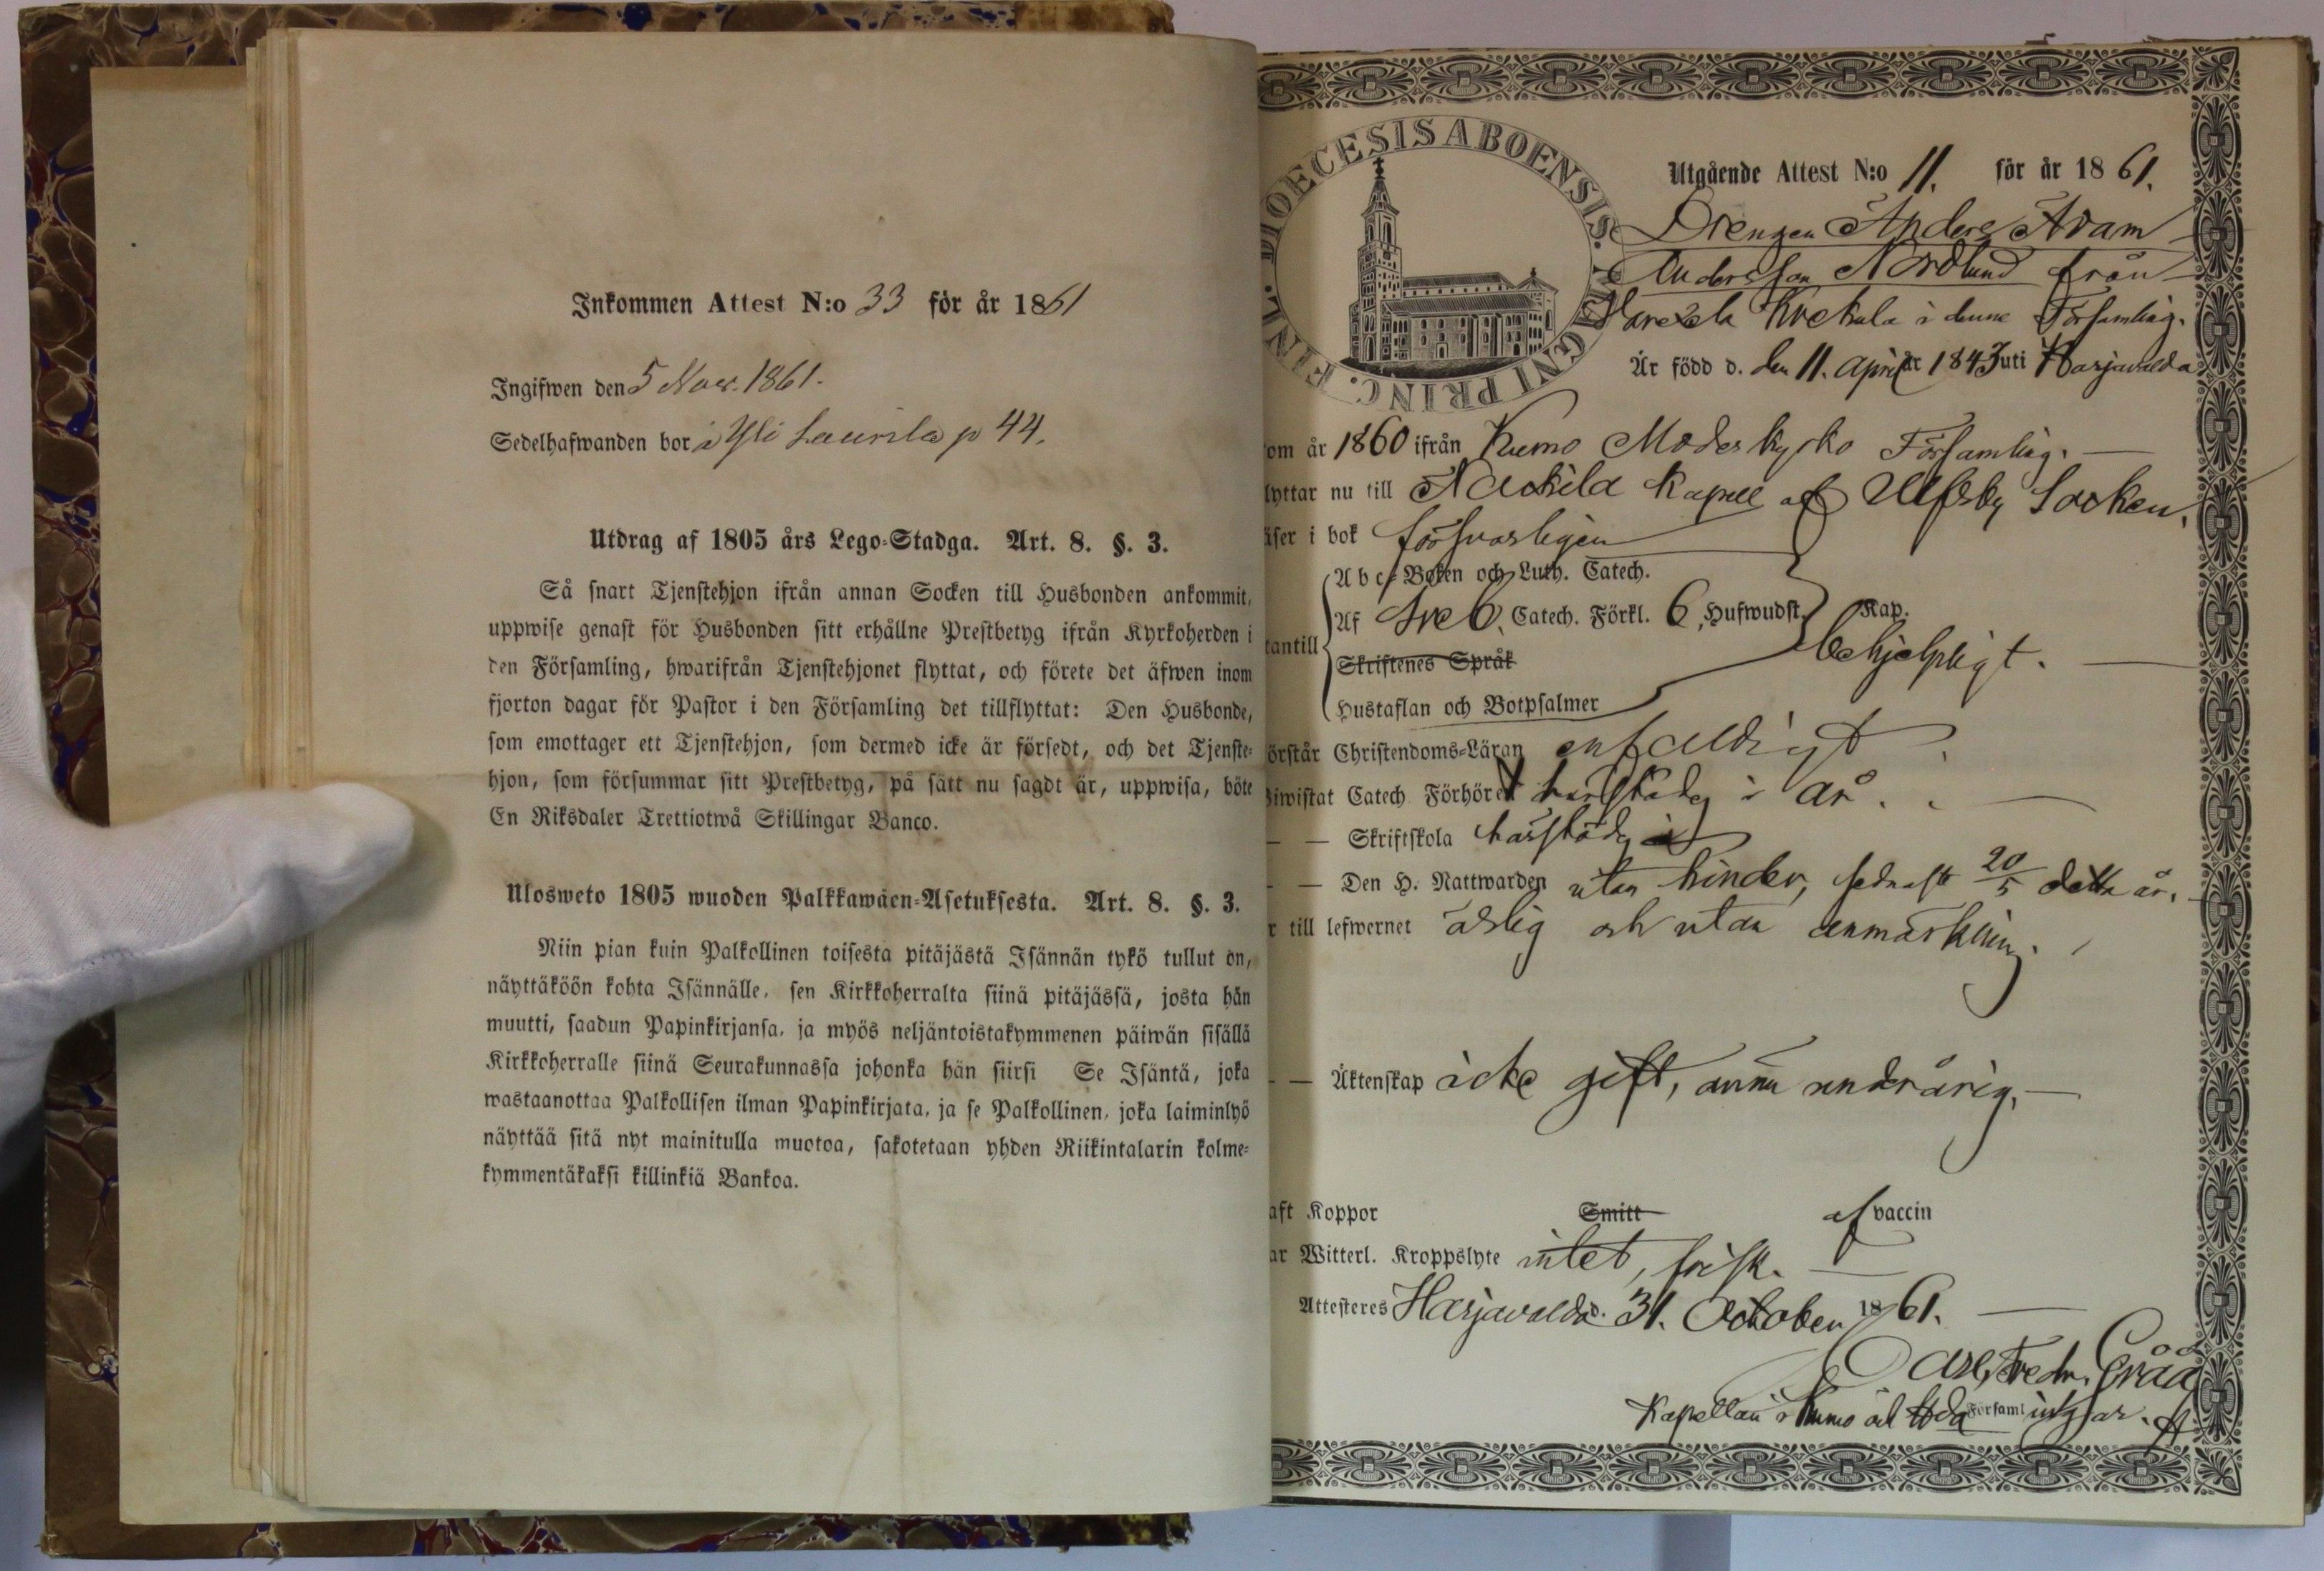 Inkommen Attest N:o 33 för år 1861
Ingifwen den 5 Nov. 1861.
Sedelhafwanden bor i Yli Laurila p 44.
Utdrag af 1805 års Lego-Stadga. Art. 8. §. 3.
Så snart Tjenstehjon ifrån annan Socken till Husbonden ankommit,
uppwise genast för Husbonden sitt erhållne Prestbetyg ifrån Kyrkoherden i
den Församling, hwarifrån Tjenstehjonet flyttat, och förete det äfwen inom
fjorton dagar för Pastor i den Församling det tillflyttat: Den Husbonde,
som emottager ett Tjenstehjon, som dermed icke är försedt, och det Tjenste-
hjon, som försummar sitt Prestbetyg, på sätt nu sagdt är, uppwisa, böte
En Riksdaler Trettiotwå Skillingar Banco.
Ulosweto 1805 wuoden Palkkawäen-Asetuksesta. Art. 8. §. 3.
Niin pian kuin Palkollinen toisesta pitäjästä Isännän tykö tullut on,
näyttäköön kohta Isännälle, sen Kirkkoherralta siinä pitäjässä, josta hän
muutti, saadun Papinkirjansa, ja myös neljäntoistakymmenen päiwän sisällä
Kirkkoherralle siinä Seurakunnassa johonka hän siirsi Se Isäntä, joka
wastaanottaa Palkollisen ilman Papinkirjata, ja se Palkollinen, joka laiminlyö
näyttää sitä nyt mainitulla muotoa, sakotetaan yhden Riikintalarin kolme-
kymmentäkaksi killinkiä Bankoa.
FINL. DIOECESIS ABOENSIS. MAGNI PRINC.
Utgående Attest N:o 11. för år 1861.
Drengen Anders Adam
Andersson Nordlund från
Krekula i denne Församling.
Är född d. den 11. April år 1843 uti Harjavalda
om år 1860 ifrån Kumo Moderkyrko Församling.
lyttar nu till Nackila Kapell af Ulfsby Socken.
äser i bok försvarligen
Abc-Boken och Luth. Catech.
Af Sveb. Catech. Förkl. 6, Hufwudst. Kap.
tantill Skriftenes Språk behjelpligt.
Hustaflan och Botpsalmer
örstår Christendoms-Läran enfaldigt
iwistat Catech Förhöret härstädes i år.
— — Skriftskola härstädes
— — Den H. Nattwarden utan hinder, sednast 20/5 detta år.
r till lefwernet ärlig och utan anmärkning.
— — Äktenskap icke gift, ännu underårig.
aft Koppor Smitt af vaccin
ar Witterl. Kroppslyte intet, frisk.
Attesteres Harjavalda d. 31. October 1861.
Carl Fredr. Gråå
Kapellan i Kumo Församlingar.